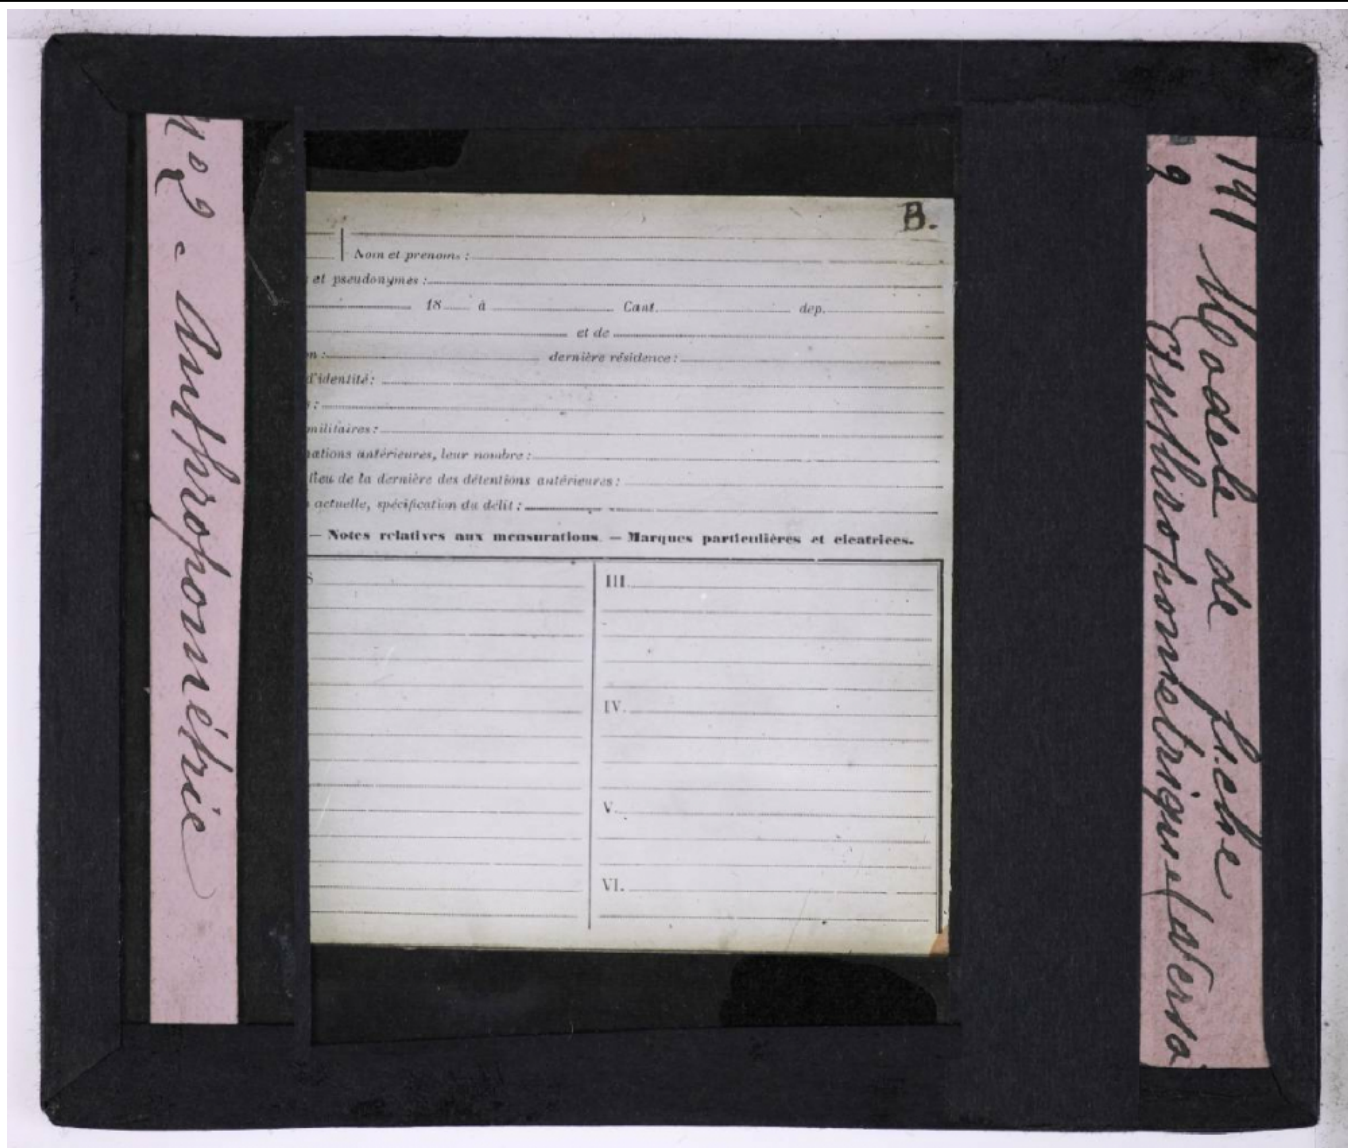 nº 2 - Anthropométrie
B.
Nom et prenoms :
et pseudonymes :
18 à Cant. dep.
et de
n : dernière résidence :
d'identité :
s :
militaires :
nations antérieures, leur nombre :
lieu de la dernière des détentions antérieures :
actuelle, spécification du délit :
— Notes relatives aux mensurations. — Marques particulières et cicatrices.
III.
IV.
V.
VI.
141 Modele de fiche
2 Anthropometrique (verso